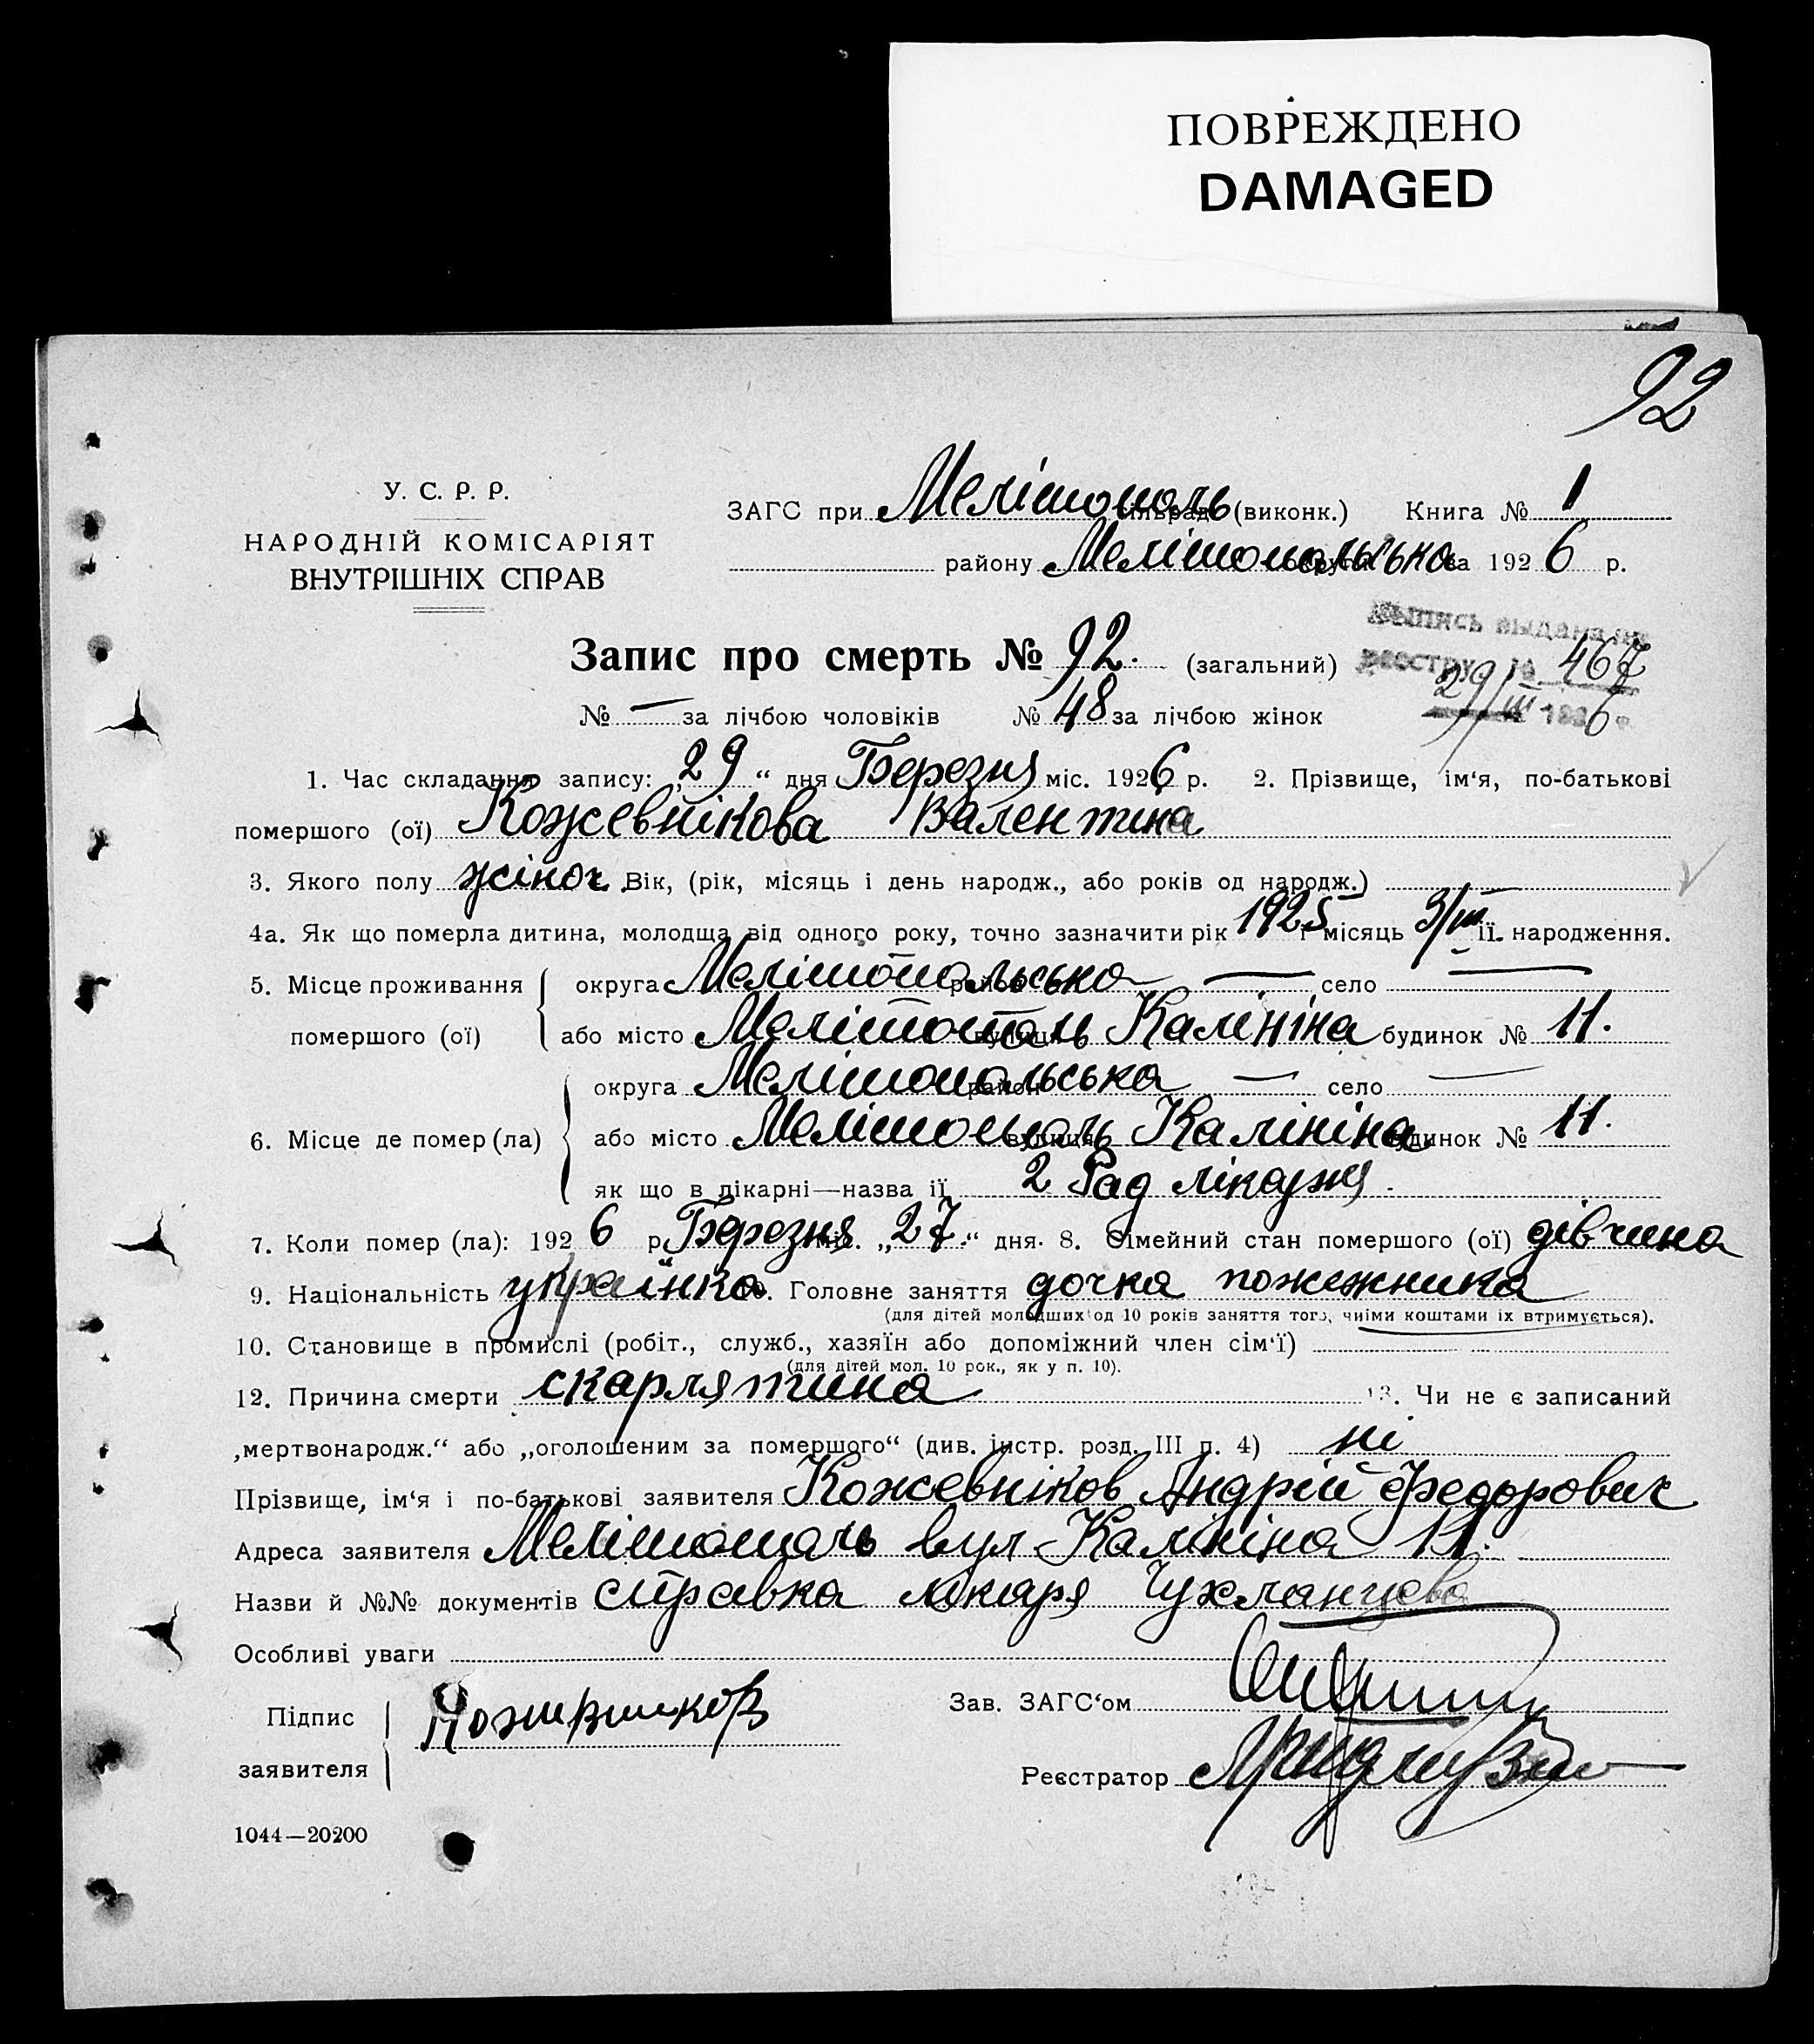 ПОВРЕЖДЕНО
DAMAGED
92
У. С. Р. Р.
НАРОДНІЙ КОМІСАРІЯТ
ВНУТРІШНІХ СПРАВ
ЗАГС при Мелітополь сільраді (виконк.) Книга № 1
району Мелітопольська округи за 1926 р.
Выпись выдана по
реестру № 467
29/III 1926 г.
Запис про смерть № 92. (загальний)
№ — за лічбою чоловіків № 48 за лічбою жінок
1. Час складання запису: „29“ дня Березня міс. 1926 р. 2. Прізвище, ім‘я, по-батькові
помершого (ої) Кожевнікова Валентина
3. Якого полу жіноч. Вік, (рік, місяць і день народж., або років од народж.) —
4а. Як що померла дитина, молодща від одного року, точно зазначити рік 1925 і місяць 3/III її народження.
5. Місце проживання помершого (ої) округа Мелітопольська район — село —
або місто Мелітополь вулиця Калініна будинок № 11.
6. Місце де помер (ла) округа Мелітопольська район — село —
або місто Мелітополь вулиця Калініна будинок № 11.
як що в лікарні—назва її 2 Рад лікарня.
7. Коли помер (ла): 1926 р. Березня міс. „27“ дня. 8. Сімейний стан помершого (ої) дівчина
9. Національність українка 10. Головне заняття дочка пожежника
(для дітей молодших од 10 років заняття того, чиїми коштами їх втримується).
10. Становище в промислі (робіт., служб., хазяїн або допоміжний член сім‘ї)
(для дітей мол. 10 рок., як у п. 10).
12. Причина смерти скарлятина 13. Чи не є записаний
„мертвонародж.“ або „оголошеним за помершого“ (див. інстр. розд. III п. 4) ні
Прізвище, ім‘я і по-батькові заявителя Кожевніков Андрій Федорович
Адреса заявителя Мелітополь вул Калініна 11.
Назви й №№ документів справка лікаря Чухланцева
Особливі уваги
Підпис заявителя Кожевников
Зав. ЗАГС‘ом
Реєстратор
1044—20200